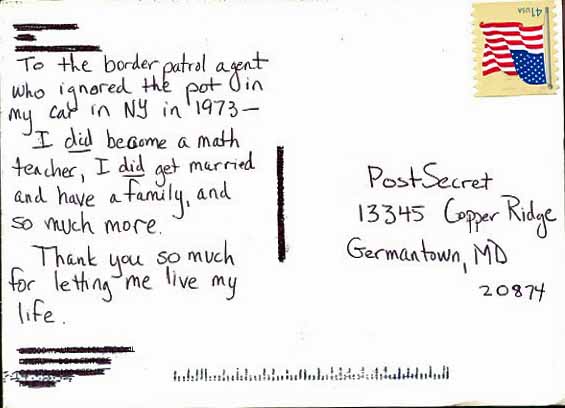 To the border patrol agent
who ignored the pot in
my car in NY in 1973—
I did become a math
teacher, I did get married
and have a family, and
so much more.
Thank you so much
for letting me live my
life.
41 USA
PostSecret
13345 Copper Ridge
Germantown, MD
20874